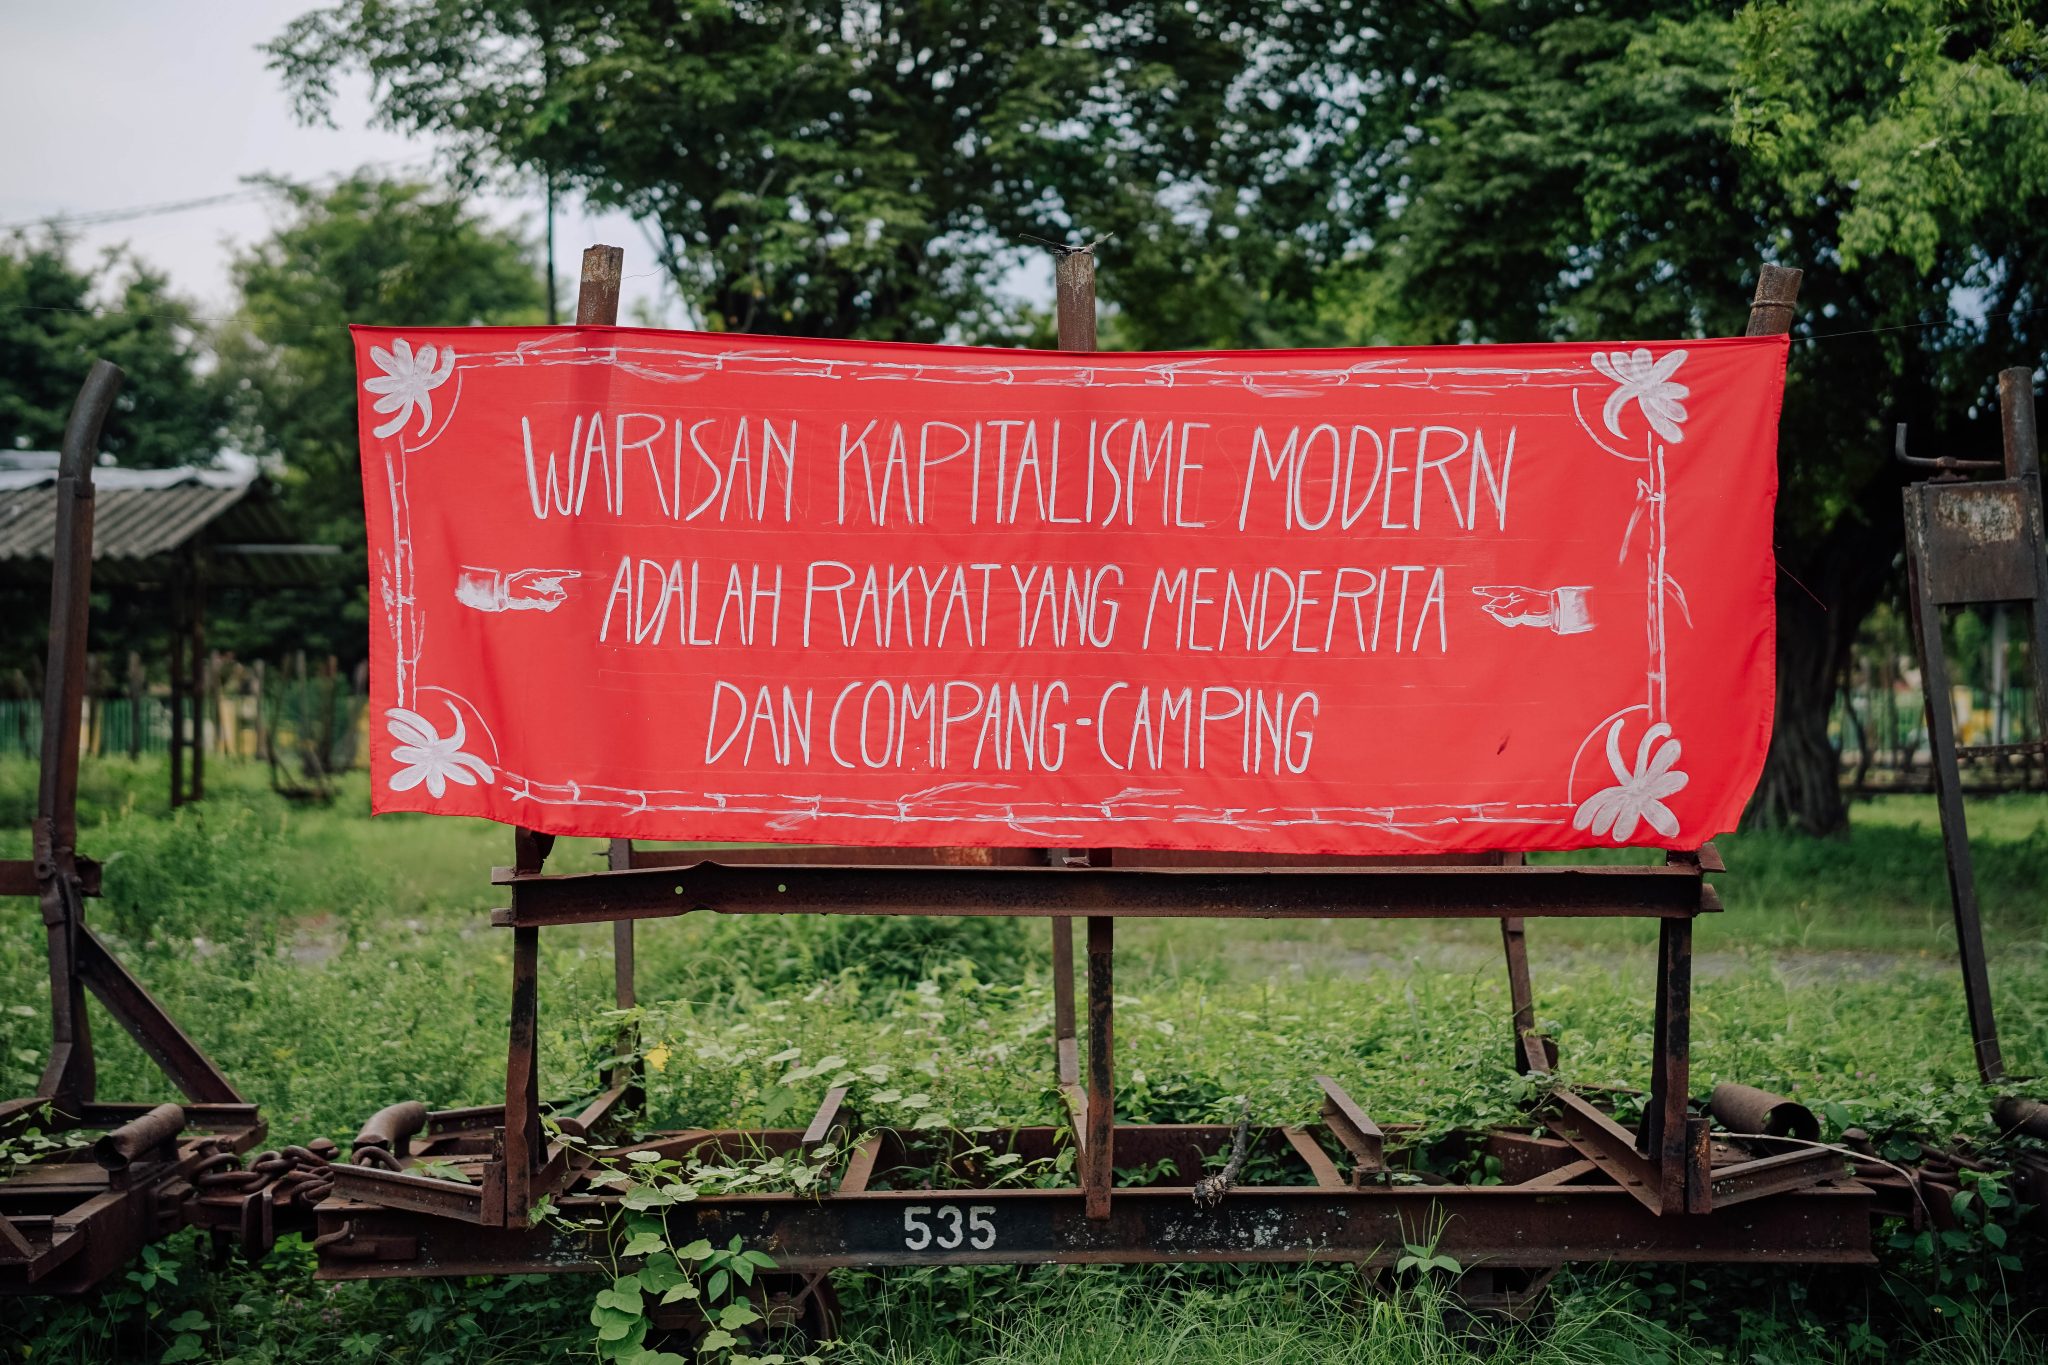 WARISAN KAPITALISME MODERN
ADALAH RAKYAT YANG MENDERITA
DAN COMPANG-CAMPING
535